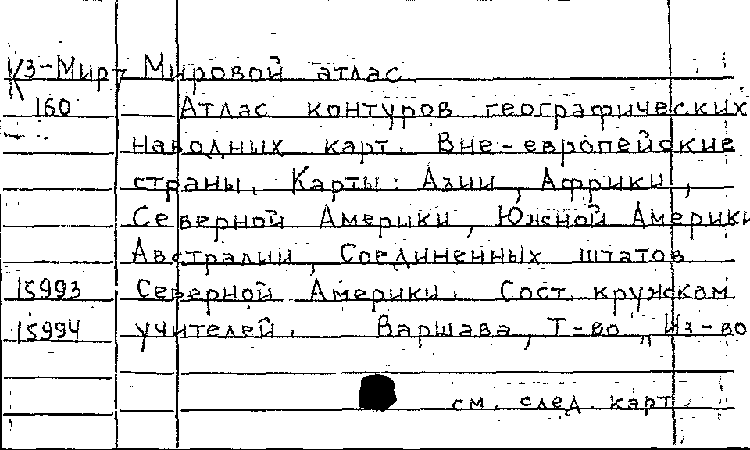 К3-Мир- Мировой атлас
160 Атлас контуров географических
народных карт. Вне-европейские
страны. Карты: Азии, Африки,
Северной Америки, Южной Америки
Австралии, Соединенных штатов
15993 Северной Америки. Сост. кружкам
15994 учителей. Варшава, Т-во "Из-во
см. след. карт.